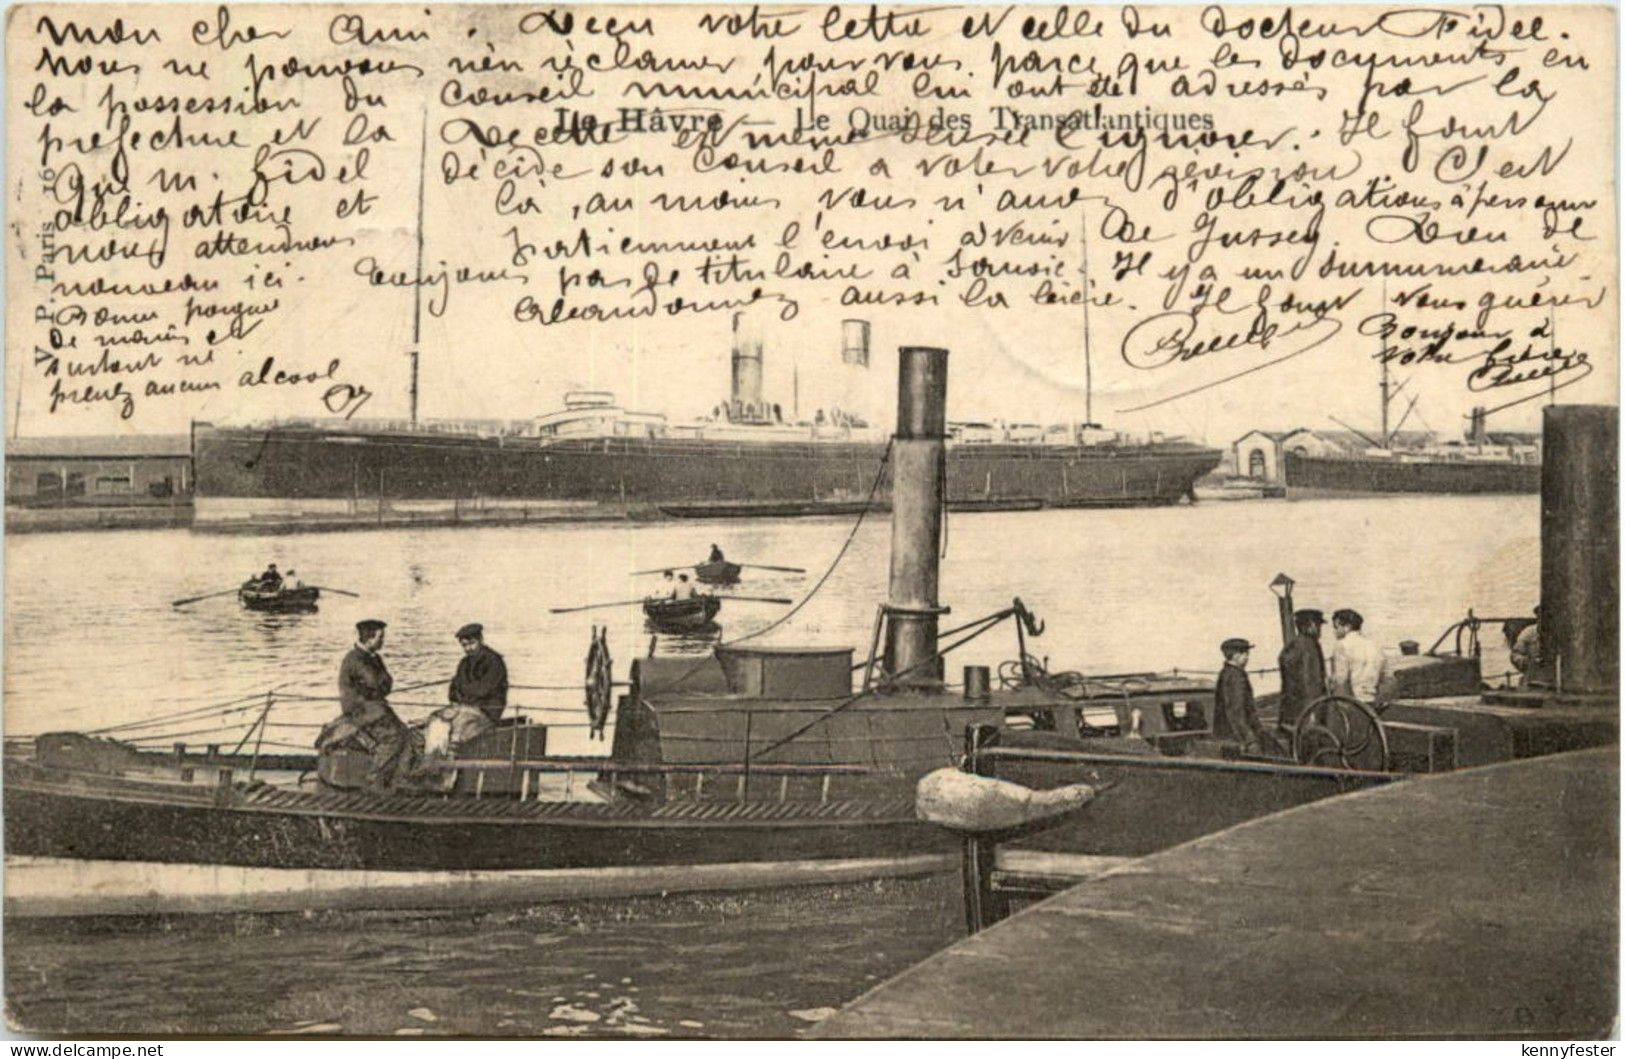 mon cher ami. Reçu votre lettre et celle du docteur Fidel.
Nous ne pouvons rien réclamer pour vous parce que les documents en
la possession du Conseil municipal lui ont été adressés par la
préfecture et la Recette est même sensée l'ignorer. Il faut
Le Hâvre — Le Quai des Transatlantiques
que M. Fidel décide son Conseil à voter votre révision. C'est
obligatoire et là, au moins vous n'avez d'obligations à personne
nous attendrons patiemment l'envoi à venir de Jussey. Rien de
nouveau ici. Toujours pas de titulaire à . Il y a un surnuméraire.
abandonnez aussi la bière. Il faut vous guérir
Bonjour à
votre frère
de moins et
surtout ne
prenez aucun alcool
V. P. Paris 16
kennyfester